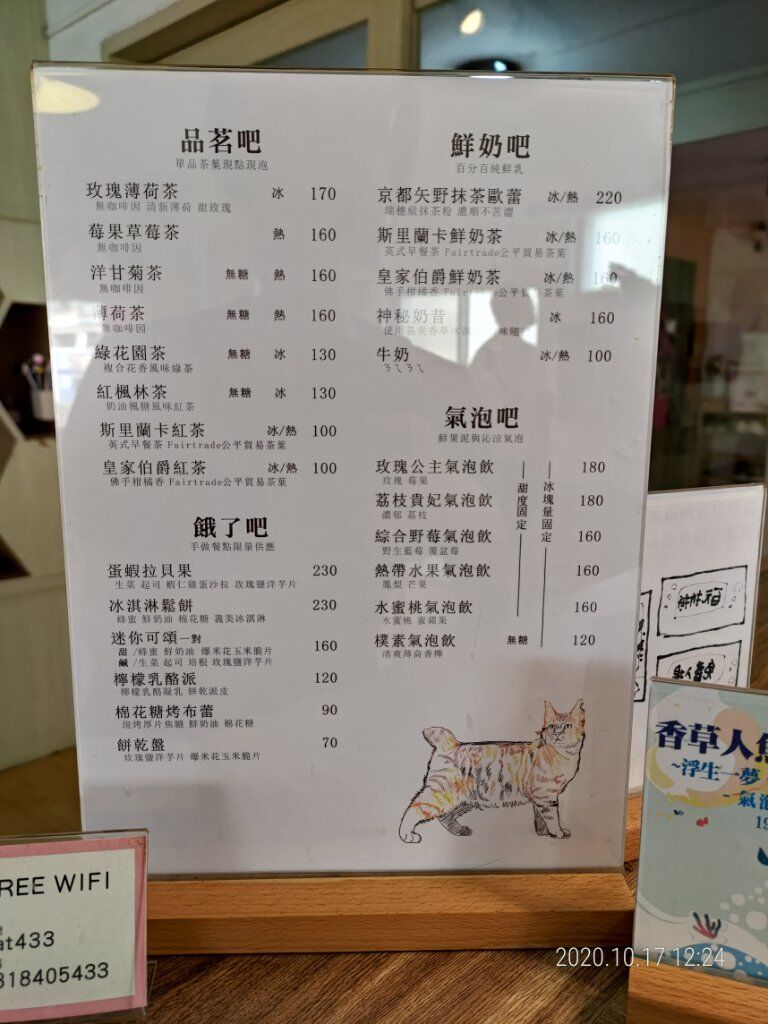 品茗吧
單品茶葉現點現泡
玫瑰薄荷茶 冰 170
無咖啡因 清新薄荷 甜玫瑰
莓果草莓茶 熱 160
無咖啡因
洋甘菊茶 無糖 熱 160
無咖啡因
薄荷茶 無糖 熱 160
無咖啡因
綠花園茶 無糖 冰 130
複合花香風味綠茶
紅楓林茶 無糖 冰 130
奶油楓糖風味紅茶
斯里蘭卡紅茶 冰/熱 100
英式早餐茶 Fairtrade公平貿易茶葉
皇家伯爵紅茶 冰/熱 100
佛手柑橘香 Fairtrade公平貿易茶葉
餓了吧
手做餐點限量供應
蛋蝦拉貝果 230
生菜 起司 蝦仁雞蛋沙拉 玫瑰鹽洋芋片
冰淇淋鬆餅 230
蜂蜜 鮮奶油 棉花糖 義美冰淇淋
迷你可頌一對 160
甜 /蜂蜜 鮮奶油 爆米花玉米脆片
鹹 /生菜 起司 培根 玫瑰鹽洋芋片
檸檬乳酪派 120
檸檬乳酪凝乳 餅乾派皮
棉花糖烤布蕾 90
現烤厚片焦糖 鮮奶油 棉花糖
餅乾盤 70
玫瑰鹽洋芋片 爆米花玉米脆片
鮮奶吧
百分百純鮮乳
京都矢野抹茶歐蕾 冰/熱 220
瑞穗級抹茶粉 濃順不苦澀
斯里蘭卡鮮奶茶 冰/熱 160
英式早餐茶 Fairtrade公平貿易茶葉
皇家伯爵鮮奶茶 冰/熱 160
佛手柑橘香 Fairtrade公平貿易茶葉
神秘奶昔 冰 160
使用義美香草冰淇
牛奶 冰/熱 100
ㄋㄟㄋㄟ
氣泡吧
鮮果泥與沁涼氣泡
玫瑰公主氣泡飲 180
玫瑰 莓果
荔枝貴妃氣泡飲 180
濃郁 荔枝
綜合野莓氣泡飲 160
野生藍莓 覆盆莓
熱帶水果氣泡飲 160
鳳梨 芒果
水蜜桃氣泡飲 160
水蜜桃 蜜蘋果
樸素氣泡飲 無糖 120
清爽薄荷香檸
甜度固定
冰塊量固定
REE WIFI
at433
318405433
香草人魚
~浮生一夢
- 氣泡
19
2020.10.17 12:24